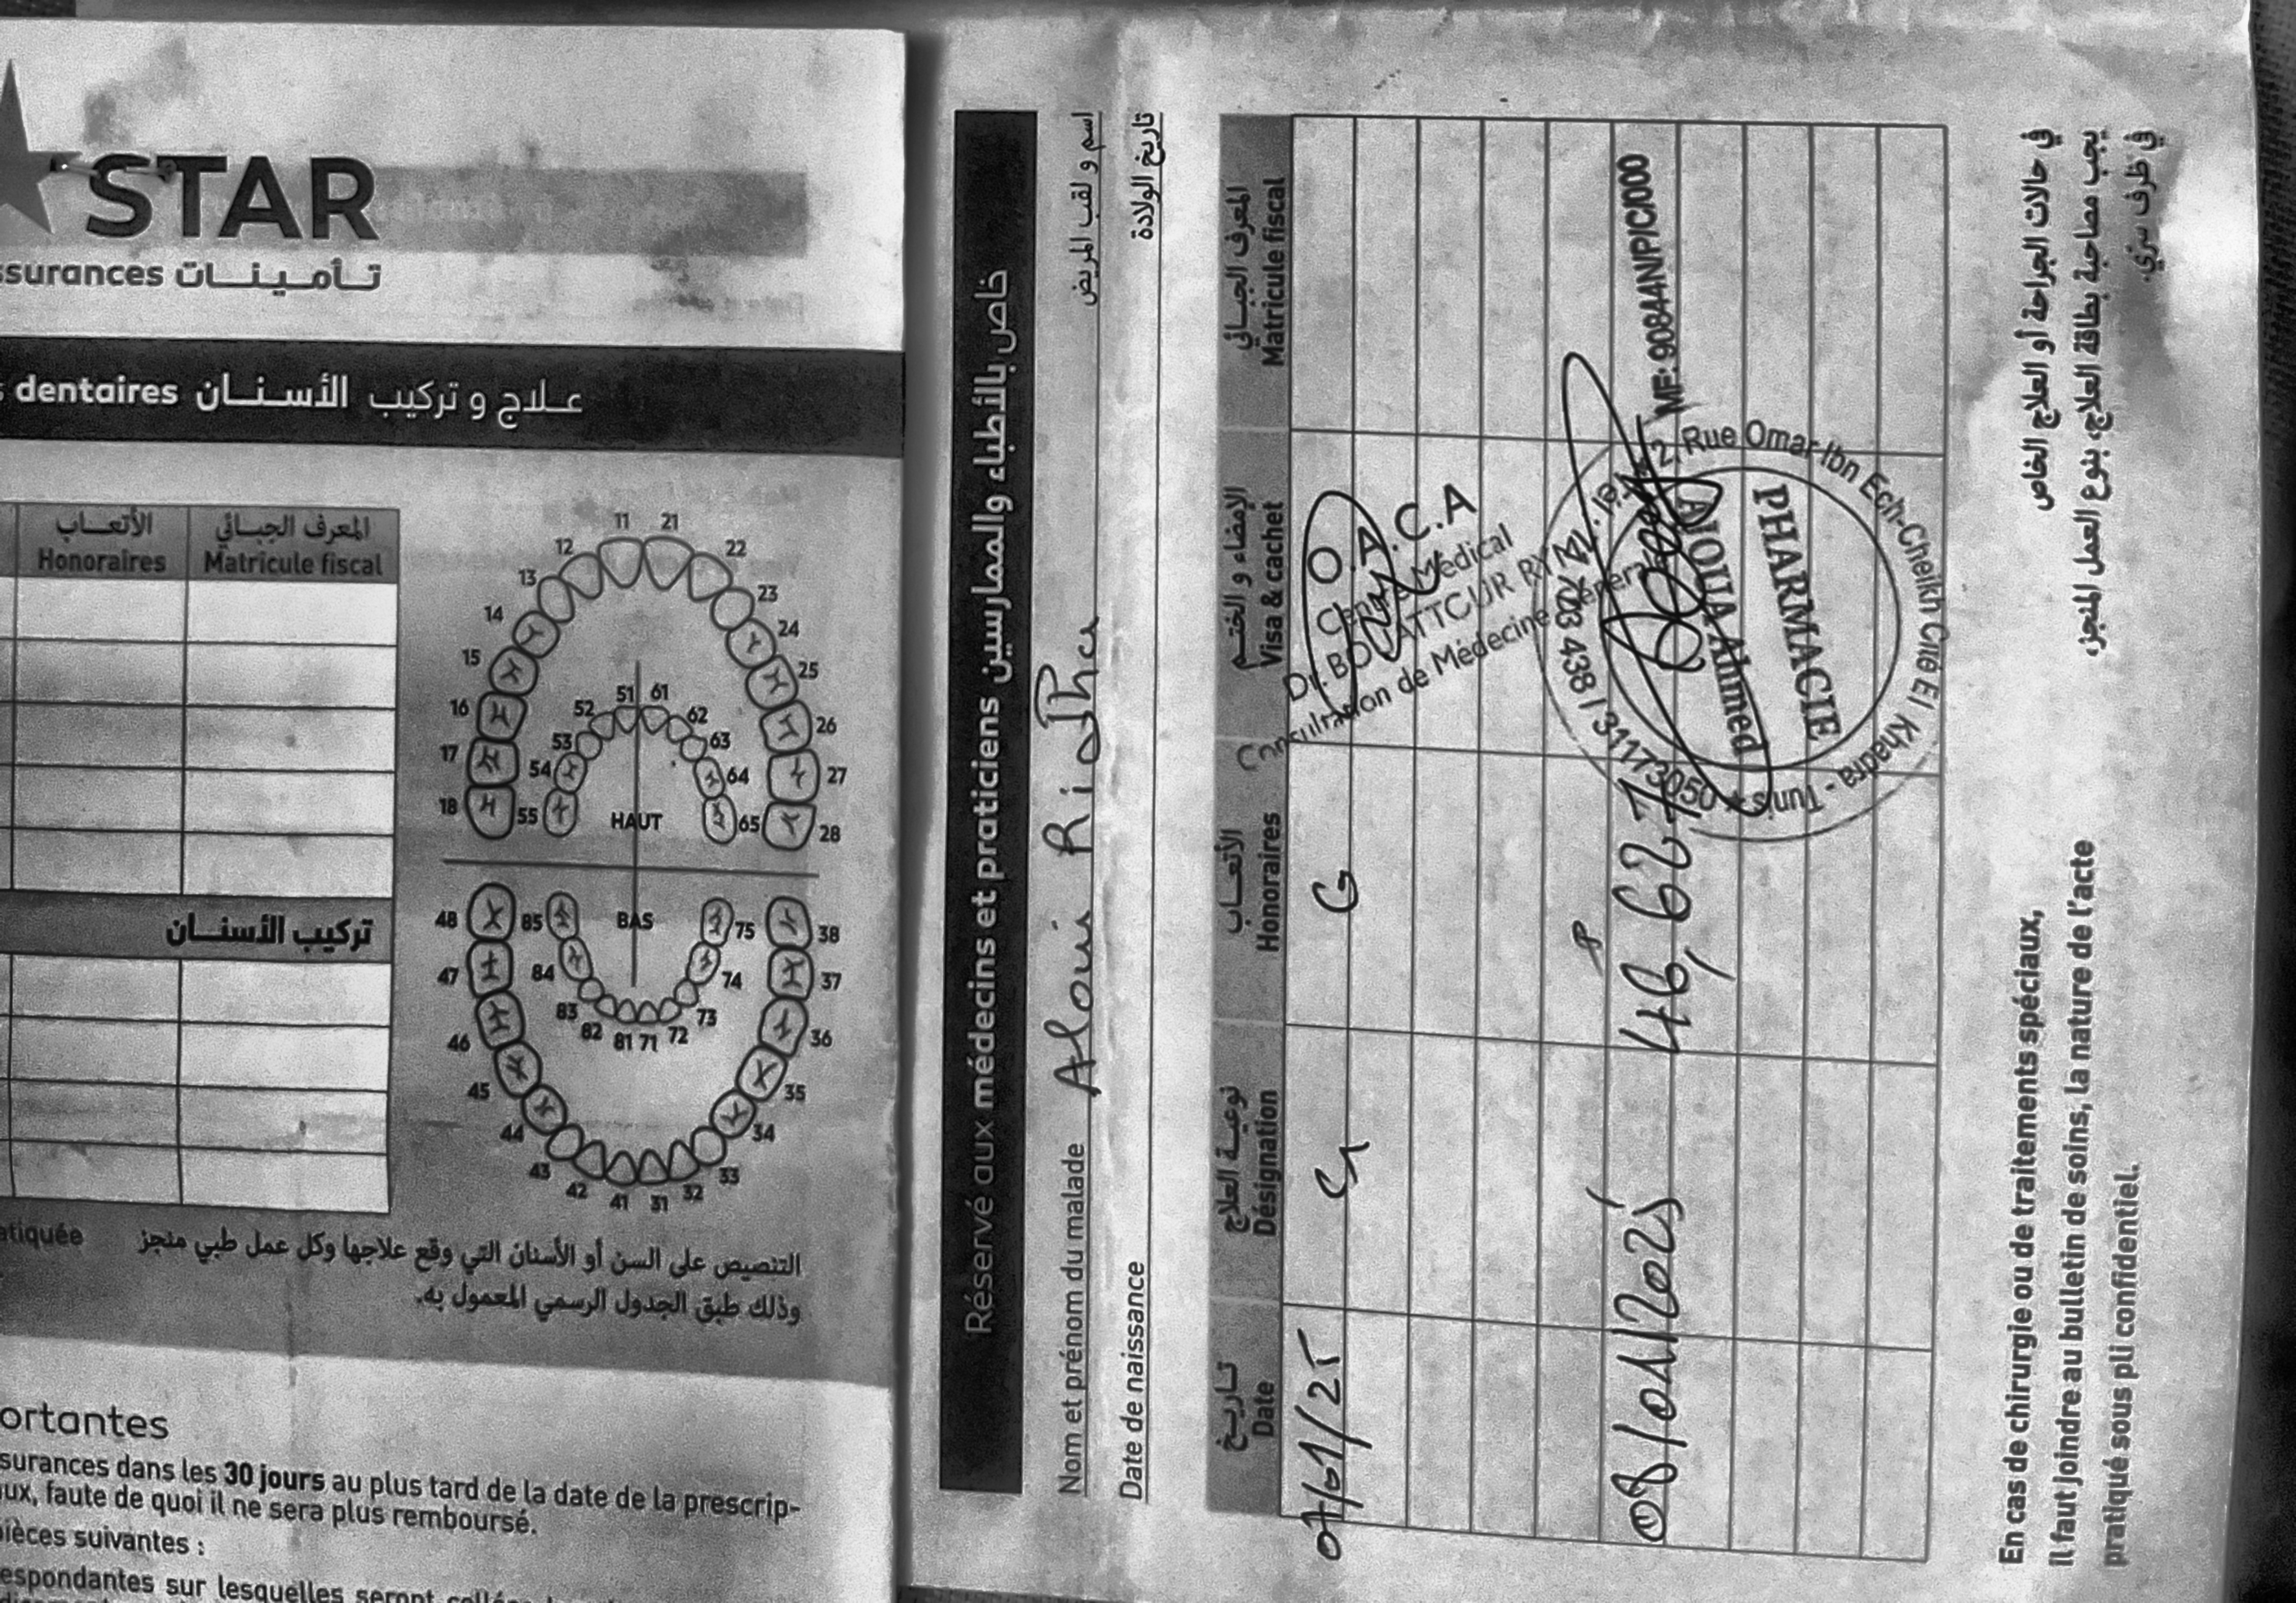 STAR
ssurances تـأمـيـنـات
dentaires علاج و تركيب الأسنان
الأتعاب
Honoraires
المعرف الجبائي
Matricule fiscal
11 21
12 22
13 23
14 24
15 25
16 26
17 27
18 28
51 61
52 62
53 63
54 64
55 65
HAUT
48 85 BAS 75 38
47 84 74 37
83 82 81 71 72 73
46 36
45 35
44 34
43 42 41 31 32 33
تركيب الأسنان
atiquée
التنصيص على السن أو الأسنان التي وقع علاجها وكل عمل طبي منجز
وذلك طبق الجدول الرسمي المعمول به.
ortantes
surances dans les 30 jours au plus tard de la date de la prescrip-
ux, faute de quoi il ne sera plus remboursé.
ièces suivantes :
espondantes sur lesquelles seront
Réservé aux médecins et praticiens خاص بالأطباء والممارسين
Nom et prénom du malade Aloui Ridha اسم و لقب المريض
Date de naissance تاريخ الولادة
تاريخ
Date
نوعية العلاج
Désignation
الأتعاب
Honoraires
الإمضاء و الختم
Visa & cachet
المعرف الجبائي
Matricule fiscal
07/01/25 G G
O.A.C.A
Centre Médical
Dr. BOUATTOUR RYM
Consultation de Médecine Générale
08/01/2025 46,627
MF: 90844N/P/C/000
2, Rue Omar Ibn Ech-Cheikh Cité El Khadra - Tunis
438 / 31173050
Ahmed
PHARMACIE
En cas de chirurgie ou de traitements spéciaux,
Il faut joindre au bulletin de soins, la nature de l'acte
pratiqué sous pli confidentiel.
في حالات الجراحة أو العلاج الخاص
يجب مصاحبة بطاقة العلاج، بنوع العمل المنجز،
في ظرف سري.